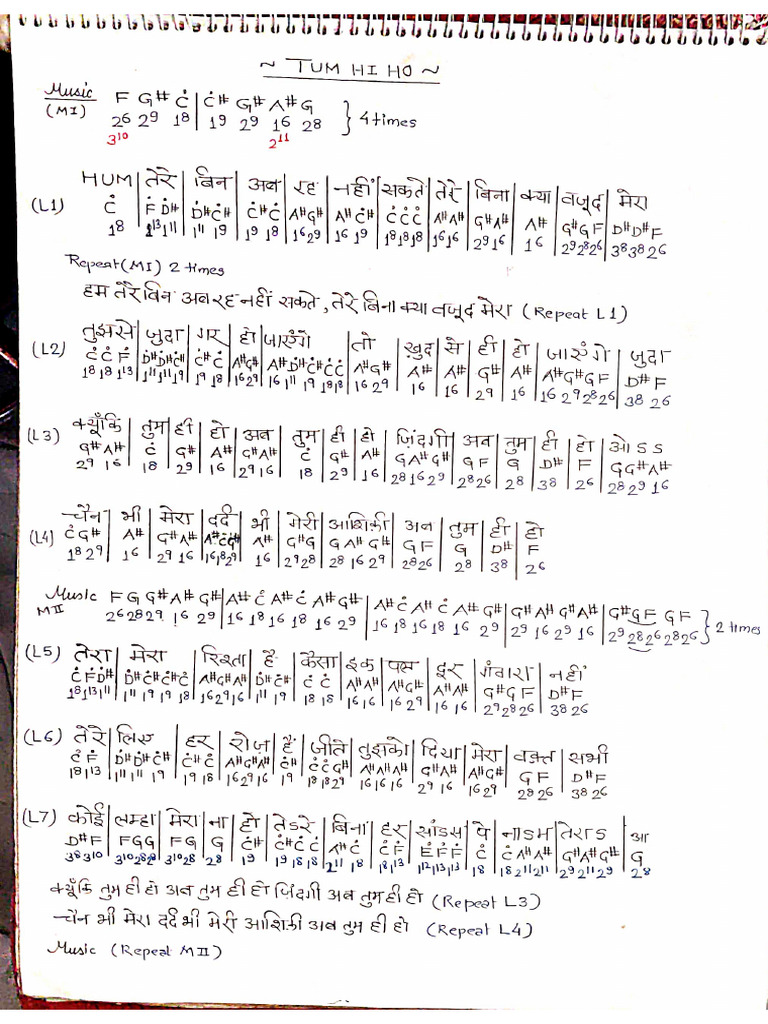 ~ TUM HI HO ~
Music F G# Ċ | Ċ# G# A# G } 4 times
(MI) 26 29 18 | 19 29 16 28
3¹⁰ 2¹¹
HUM | तेरे | बिन | अब | रह | नहीं | सकते | तेरे | बिना | क्या | वजूद | मेरा
(L1) Ċ | Ḟ Ḋ# | Ḋ# Ċ# | Ċ# Ċ | A# G# | A# Ċ# | Ċ Ċ Ċ | A# A# | G# A# | A# | G# G F | D# D# F
18 | 1¹³ 1¹¹ | 1¹¹ 19 | 19 18 | 16 29 | 16 19 | 18 18 18 | 16 16 | 29 16 | 16 | 29 28 26 | 38 38 26
Repeat (MI) 2 times
हम तेरे बिन अब रह नहीं सकते, तेरे बिना क्या वजूद मेरा (Repeat L1)
तुझसे | जुदा | गर | हो | जाएंगे | तो | ख़ुद | से | ही | हो | जाएंगे | जुदा
(L2) Ċ Ċ Ḟ | Ḋ# Ḋ# Ċ# | Ċ# Ċ | A# G# | A# Ḋ# Ċ# Ċ Ċ | A# G# | A# | A# | G# | A# | A# G# G F | D# F
18 18 1¹³ | 1¹¹ 1¹¹ 19 | 19 18 | 16 29 | 16 1¹¹ 19 18 18 | 16 29 | 16 | 16 | 29 | 16 | 16 29 28 26 | 38 26
क्यूँकि | तुम | ही | हो | अब | तुम | ही | हो | ज़िंदगी | अब | तुम | ही | हो | ओ s s
(L3) G# A# | Ċ | G# | A# | G# A# | Ċ | G# | A# | G A# G# | G F | G | D# | F | G G# A#
29 16 | 18 | 29 | 16 | 29 16 | 18 | 29 | 16 | 28 16 29 | 28 26 | 28 | 38 | 26 | 28 29 16
चैन | भी | मेरा | दर्द | भी | मेरी | आशिक़ी | अब | तुम | ही | हो
(L4) Ċ G# | A# | G# A# | A# Ċ G# | A# | G# G | G A# G# | G F | G | D# | F
18 29 | 16 | 29 16 | 16 18 29 | 16 | 29 28 | 28 16 29 | 28 26 | 28 | 38 | 26
Music F G G# A# G# | A# Ċ A# Ċ A# G# | A# Ċ A# Ċ A# G# | G# A# G# A# | G# G F G F } 2 times
MII 26 28 29 16 29 | 16 18 16 18 16 29 | 16 18 16 18 16 29 | 29 16 29 16 | 29 28 26 28 26
(L5) तेरा | मेरा | रिश्ता | है | कैसा | इक | पल | दूर | गंवारा | नहीं
Ċ Ḟ Ḋ# | Ḋ# Ċ# Ċ# Ċ | A# G# A# | Ḋ# Ċ# | Ċ Ċ | A# A# | A# G# | A# A# | G# G F | D# F
18 1¹³ 1¹¹ | 1¹¹ 19 19 18 | 16 29 16 | 1¹¹ 19 | 18 18 | 16 16 | 16 29 | 16 16 | 29 28 26 | 38 26
(L6) तेरे | लिए | हर | रोज़ | हैं | जीते | तुझको | दिया | मेरा | वक़्त | सभी
Ċ Ḟ | Ḋ# Ḋ# Ċ# | Ċ# Ċ | A# G# A# | Ċ# | Ċ Ċ G# | A# A# A# | G# A# | A# G# | G F | D# F
18 1¹³ | 1¹¹ 1¹¹ 19 | 19 18 | 16 29 16 | 19 | 18 18 29 | 16 16 16 | 29 16 | 16 29 | 28 26 | 38 26
(L7) कोई | लम्हा | मेरा | ना | हो | तेsरे | बिना | हर | सांsस | पे | नाsम | तेराs | आ
D# F | F G G | F G | G | Ċ# | Ċ# Ċ Ċ | A# Ċ | Ċ Ḟ | Ė Ḟ Ḟ | Ċ | Ċ A# A# | G# A# G# | G
38 3¹⁰ | 3¹⁰ 28 28 | 3¹⁰ 28 | 28 | 19 | 19 18 18 | 2¹¹ 18 | 18 1¹³ | 1¹² 1¹³ 1¹³ | 18 | 18 2¹¹ 2¹¹ | 29 2¹¹ 29 | 28
क्यूँकि तुम ही हो अब तुम ही हो ज़िंदगी अब तुम ही हो (Repeat L3)
चैन भी मेरा दर्द भी मेरी आशिक़ी अब तुम ही हो (Repeat L4)
Music (Repeat MII)